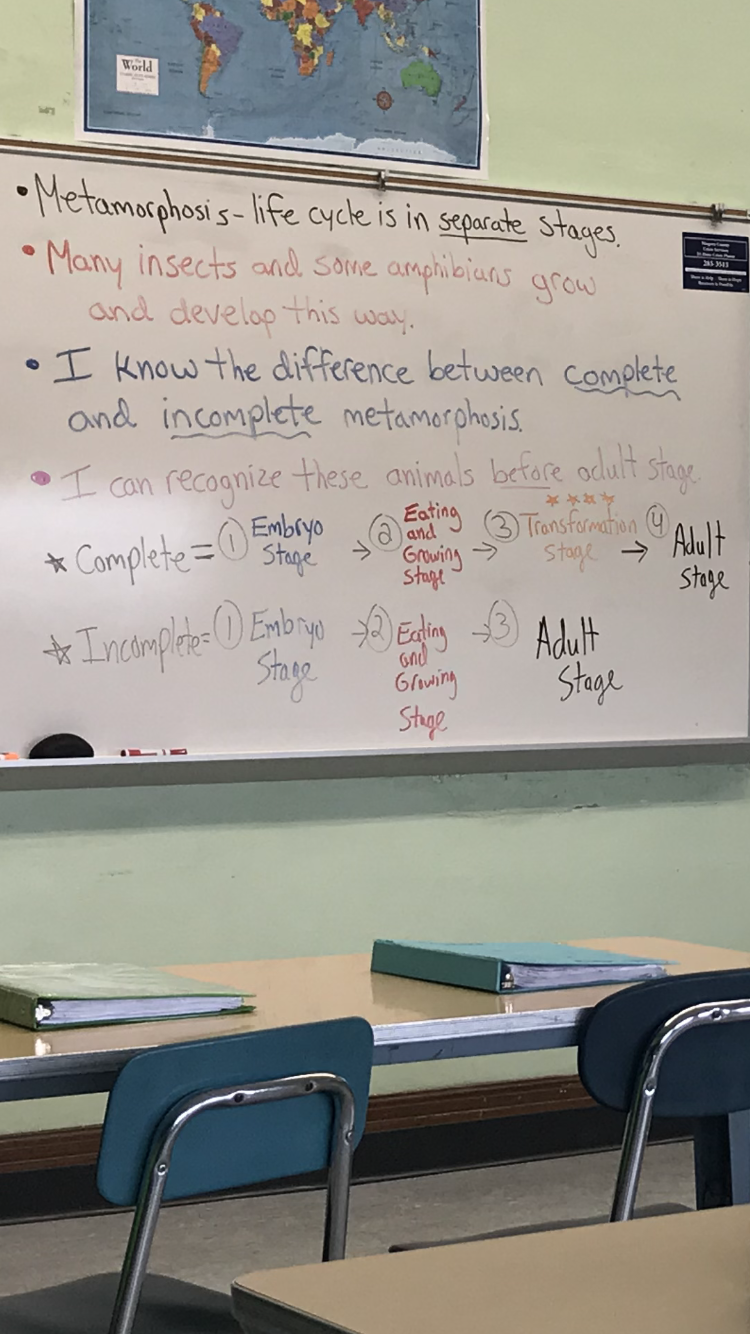 World
• Metamorphosis - life cycle is in separate stages.
• Many insects and some amphibians grow
and develop this way.
• I know the difference between complete
and incomplete metamorphosis.
• I can recognize these animals before adult stage.
★ Complete = ① Embryo Stage → ② Eating and Growing Stage → ③ Transformation Stage → ④ Adult Stage
★ Incomplete = ① Embryo Stage → ② Eating and Growing Stage → ③ Adult Stage
285-3515